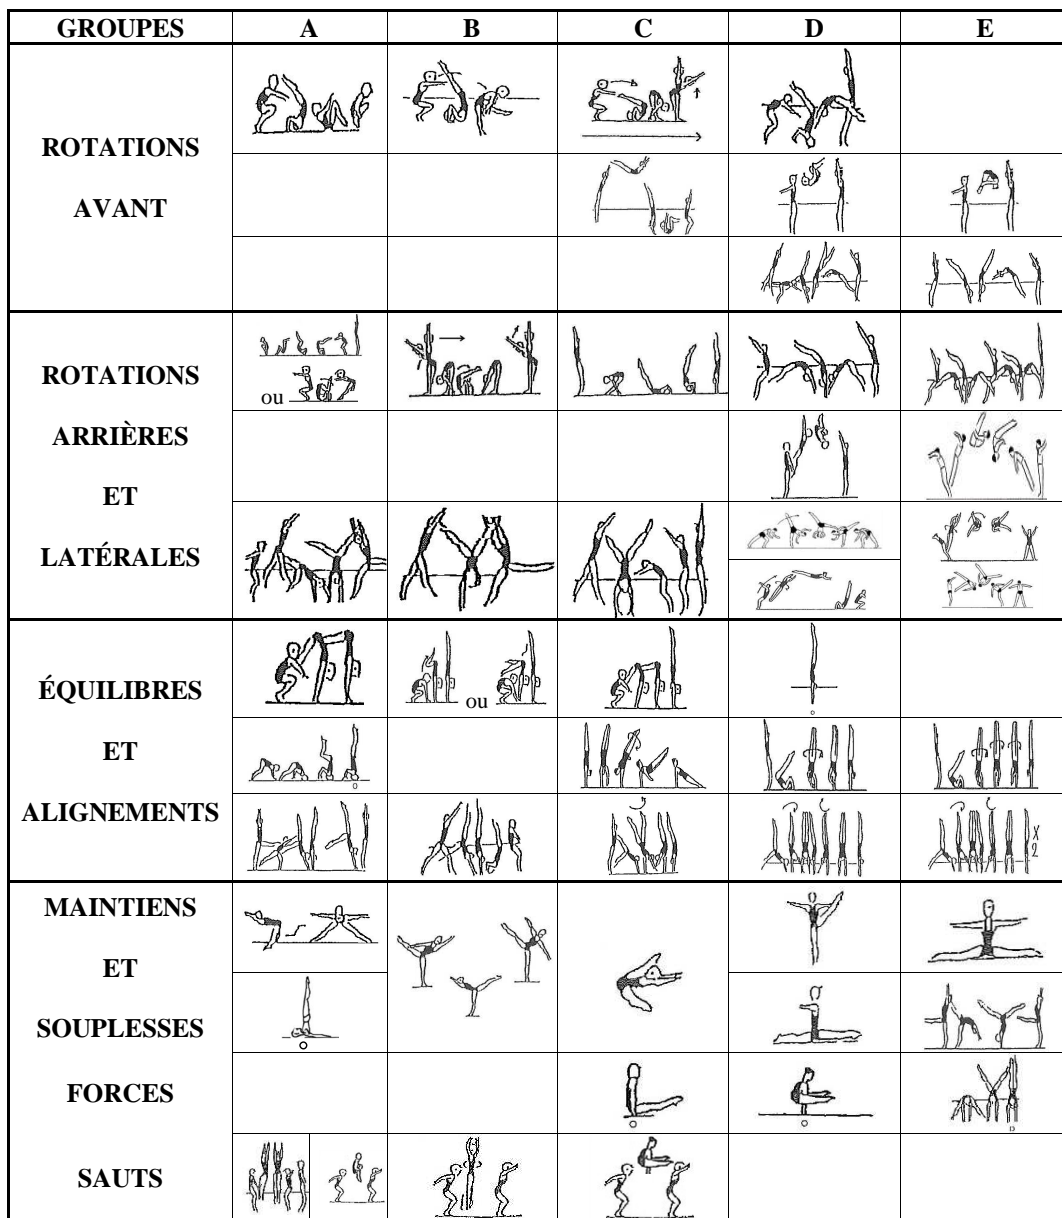 GROUPES A B C D E
ROTATIONS
AVANT
ROTATIONS
ou
ARRIÈRES
ET
LATÉRALES
ÉQUILIBRES
ou
ET
ALIGNEMENTS
X2
MAINTIENS
ET
SOUPLESSES
FORCES
SAUTS